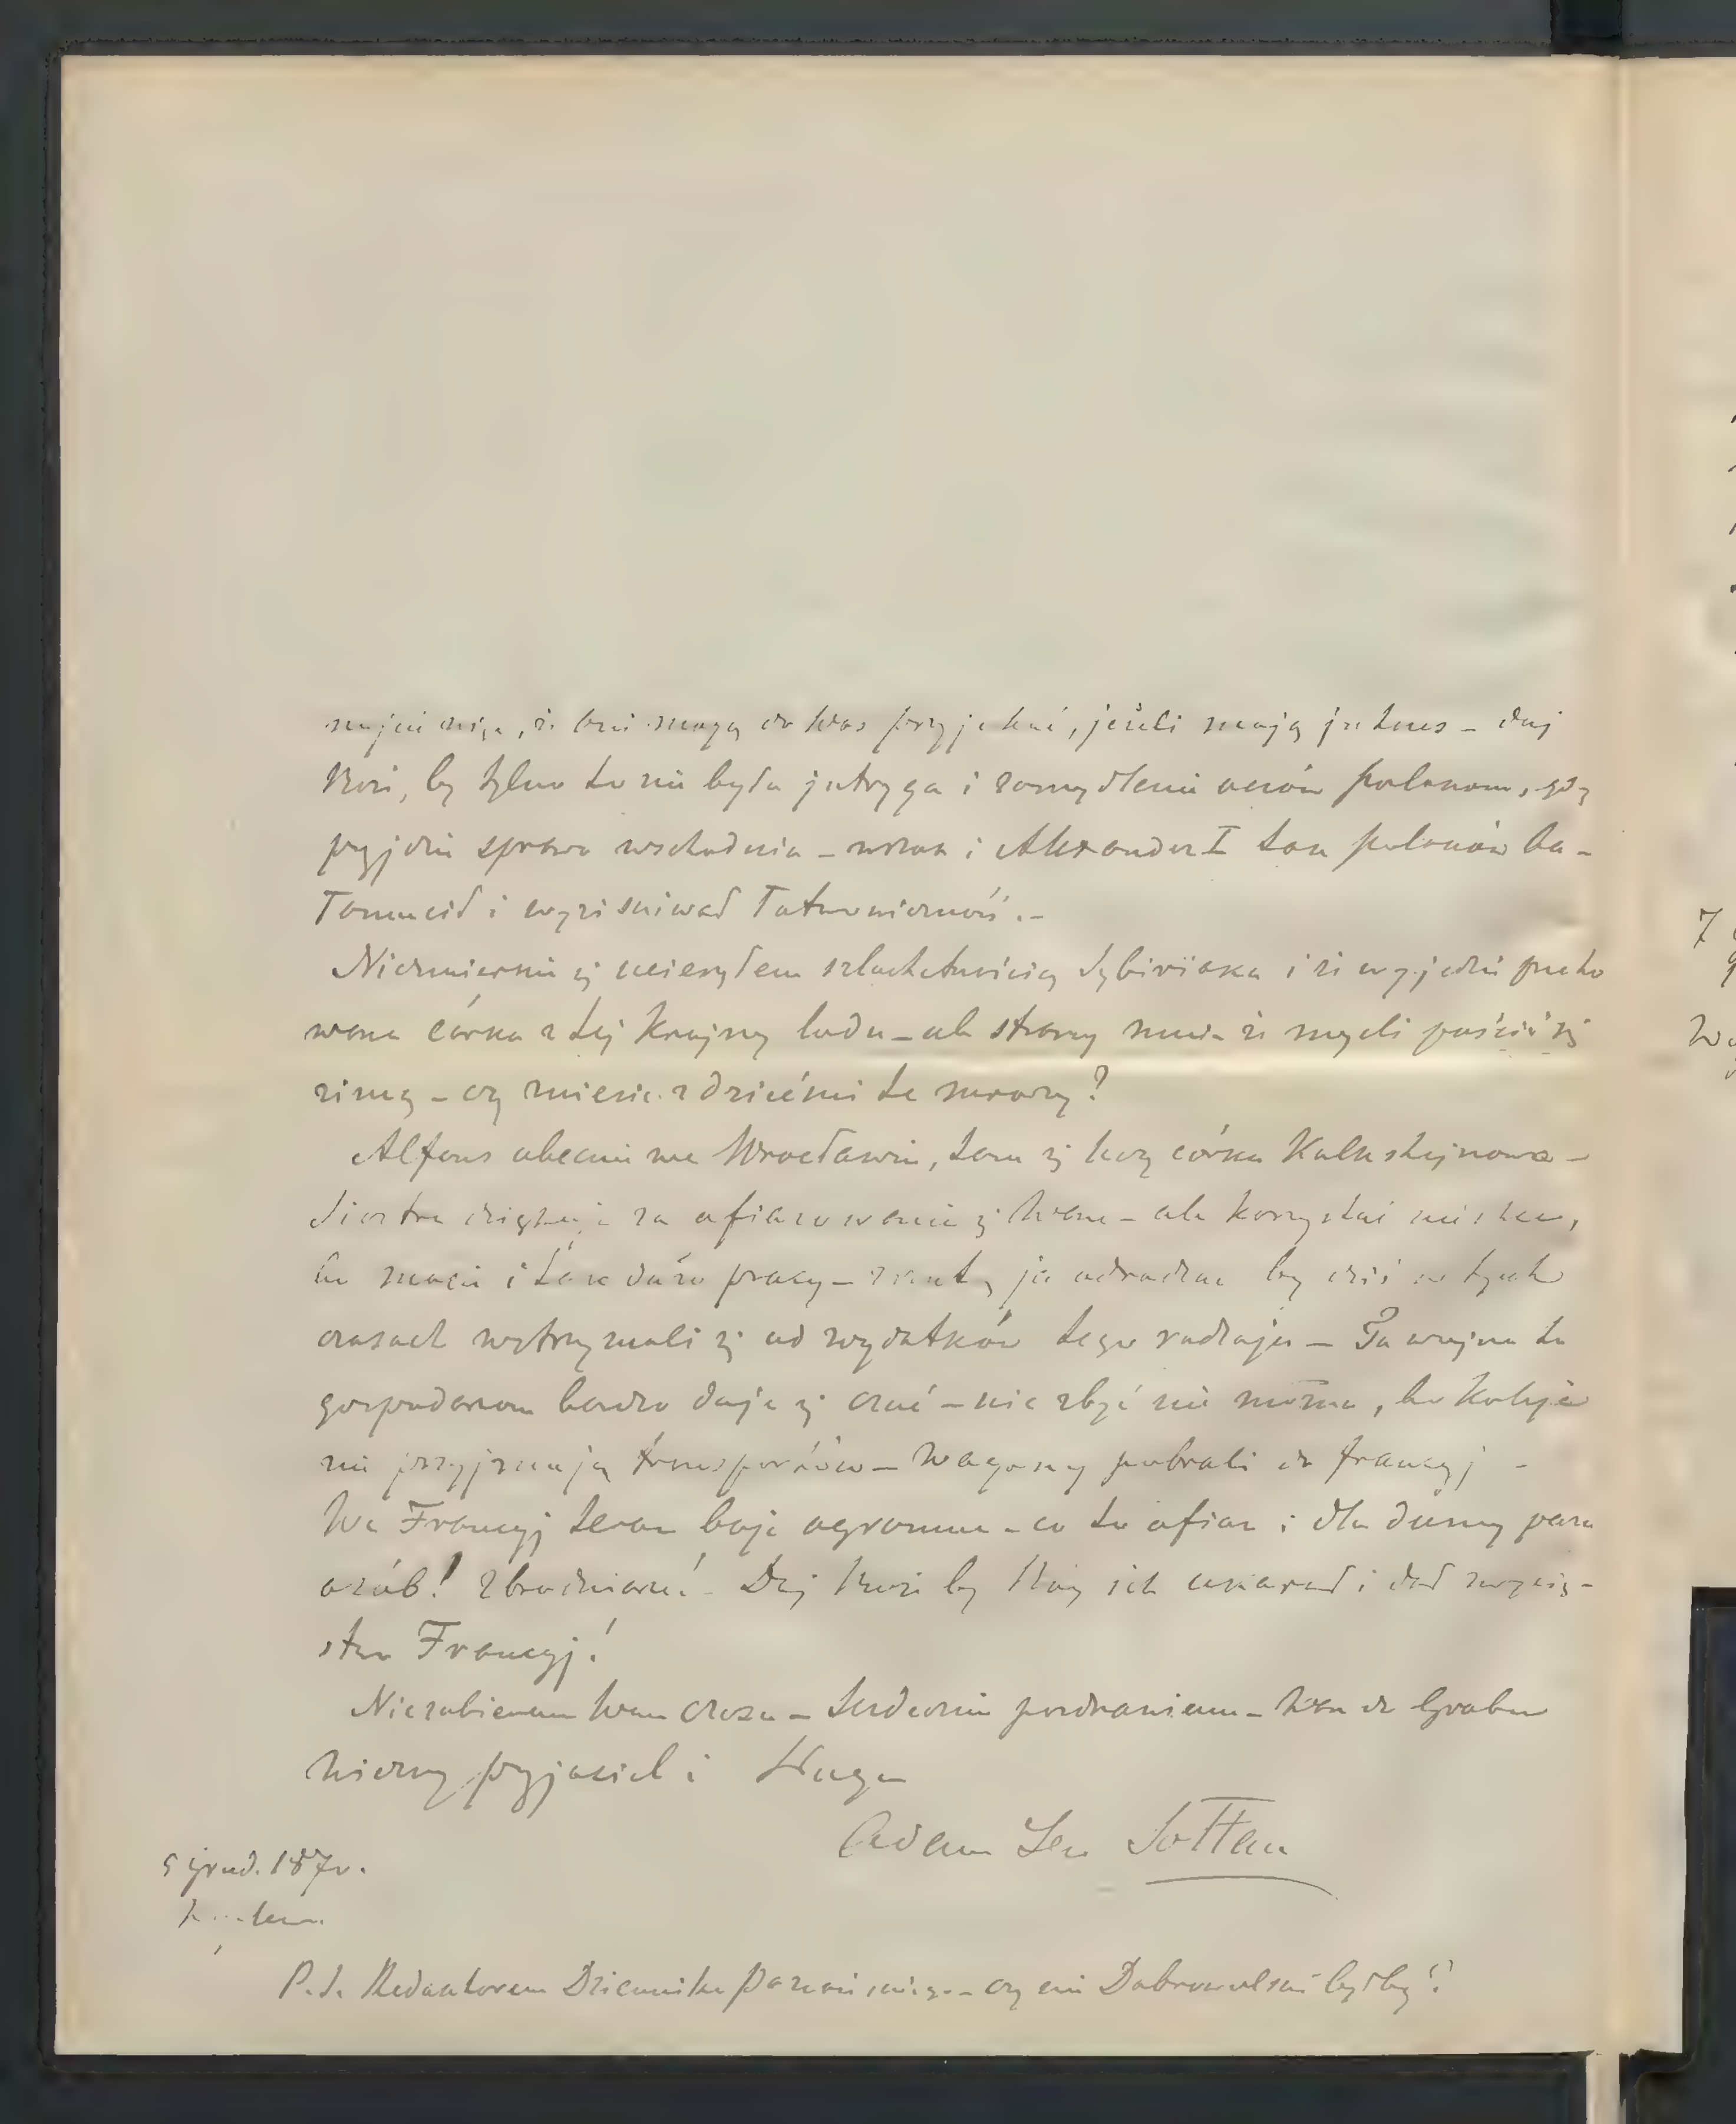 że oni mogą do Was przyjechać, jeżeli mają jnteres – daj
Boże, by tylko to nie była jntryga i zamydlenie oczów polakom, gdy
przyjdzie sprawa wschodnia – wszak i Alexander I tak polaków ba-
łamucił i wyzyskiwał łatwowierność. –
Niezmiernie się ucieszyłem szlachetnością Sybiriaka i że wyjedzie
córka z tej krajny lodu – ale strony że myśli puścić się
zimą – czy zniesie z dziećmi te mrozy?
Alfons obecnie we Wrocławiu, tam się leczy córka
Siostra dziękuje za ofiarowanie się Wam – ale korzystać nie chce,
bo macie i tak dużo pracy – ja odradzam by dziś w tych
czasach wstrzymali się od wydatków tego rodzaju – Ta wojna to
gospodarzom bardzo daje się czuć – nic zbyć nie można, bo koleje
nie przyjmują transportów – wagony pobrali do francyj –
We Francyj teraz boje ogromne – co to ofiar i dla dumy paru
osób! Zbrodniarze! – Daj Boże by Bóg ich ukarał i dał zwycię-
stwo Francyj!
Nie zabieram Wam czasu – Serdecznie pozdrawiam – Wam do grobu
Wierny przyjaciel i Sługa
Adam Lew Sołtan
5 grud. 1870.
P.S. Redaktorem Dziennika Poznańskiego – czy nie Dobrowolski byłby?